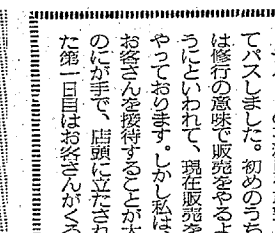 てパスしました。初めのうち
は修行の意味で販売をやるよ
うにといわれて、現在販売を
やっております。しかし私は
お客さんを接待することが大
のにが手で、店頭に立たされ
た第一日目はお客さんがくる